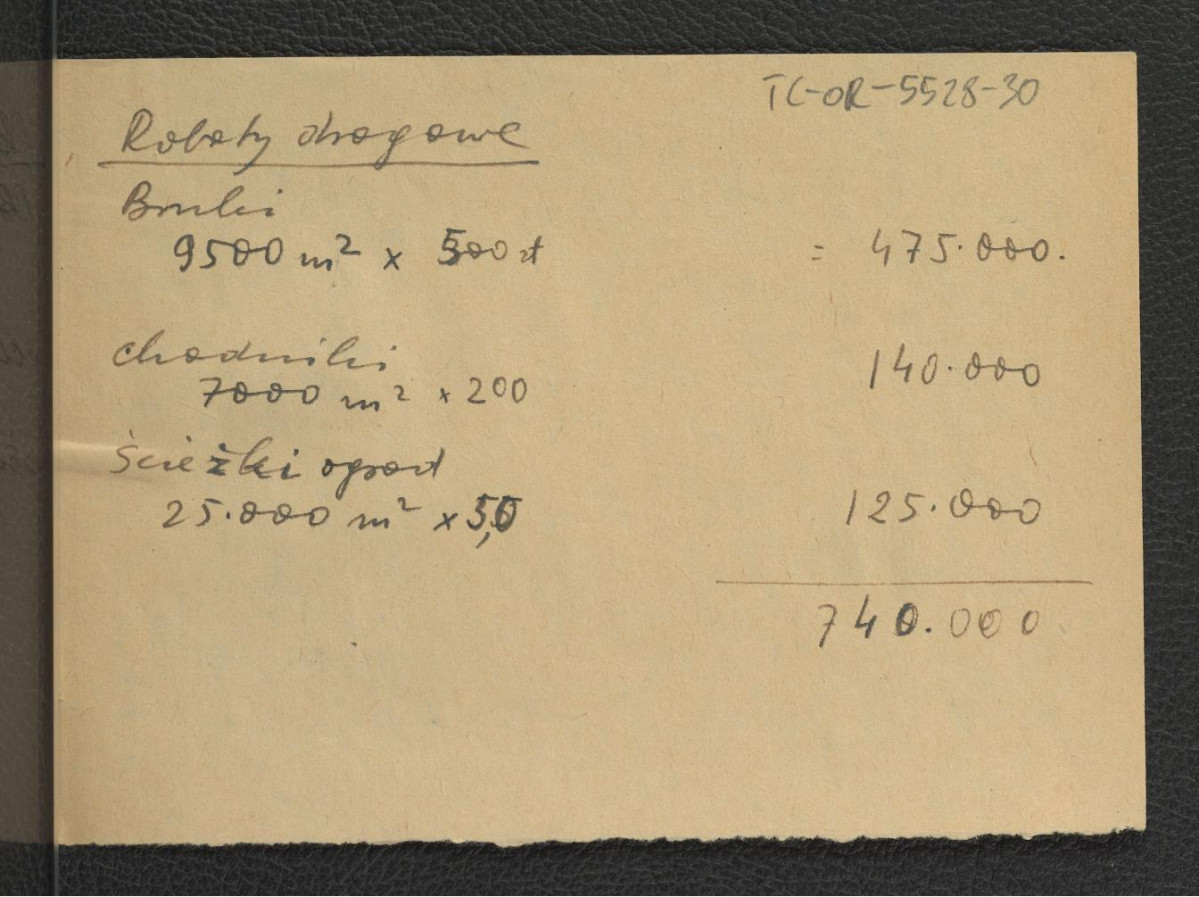 TC-OR-5528-30
Roboty drogowe
Bruki
9500 m² x 500 zł = 475.000.
chodniki
7000 m² x 200 140.000
Ścieżki ogrod
25.000 m² x 5,0 125.000
740.000